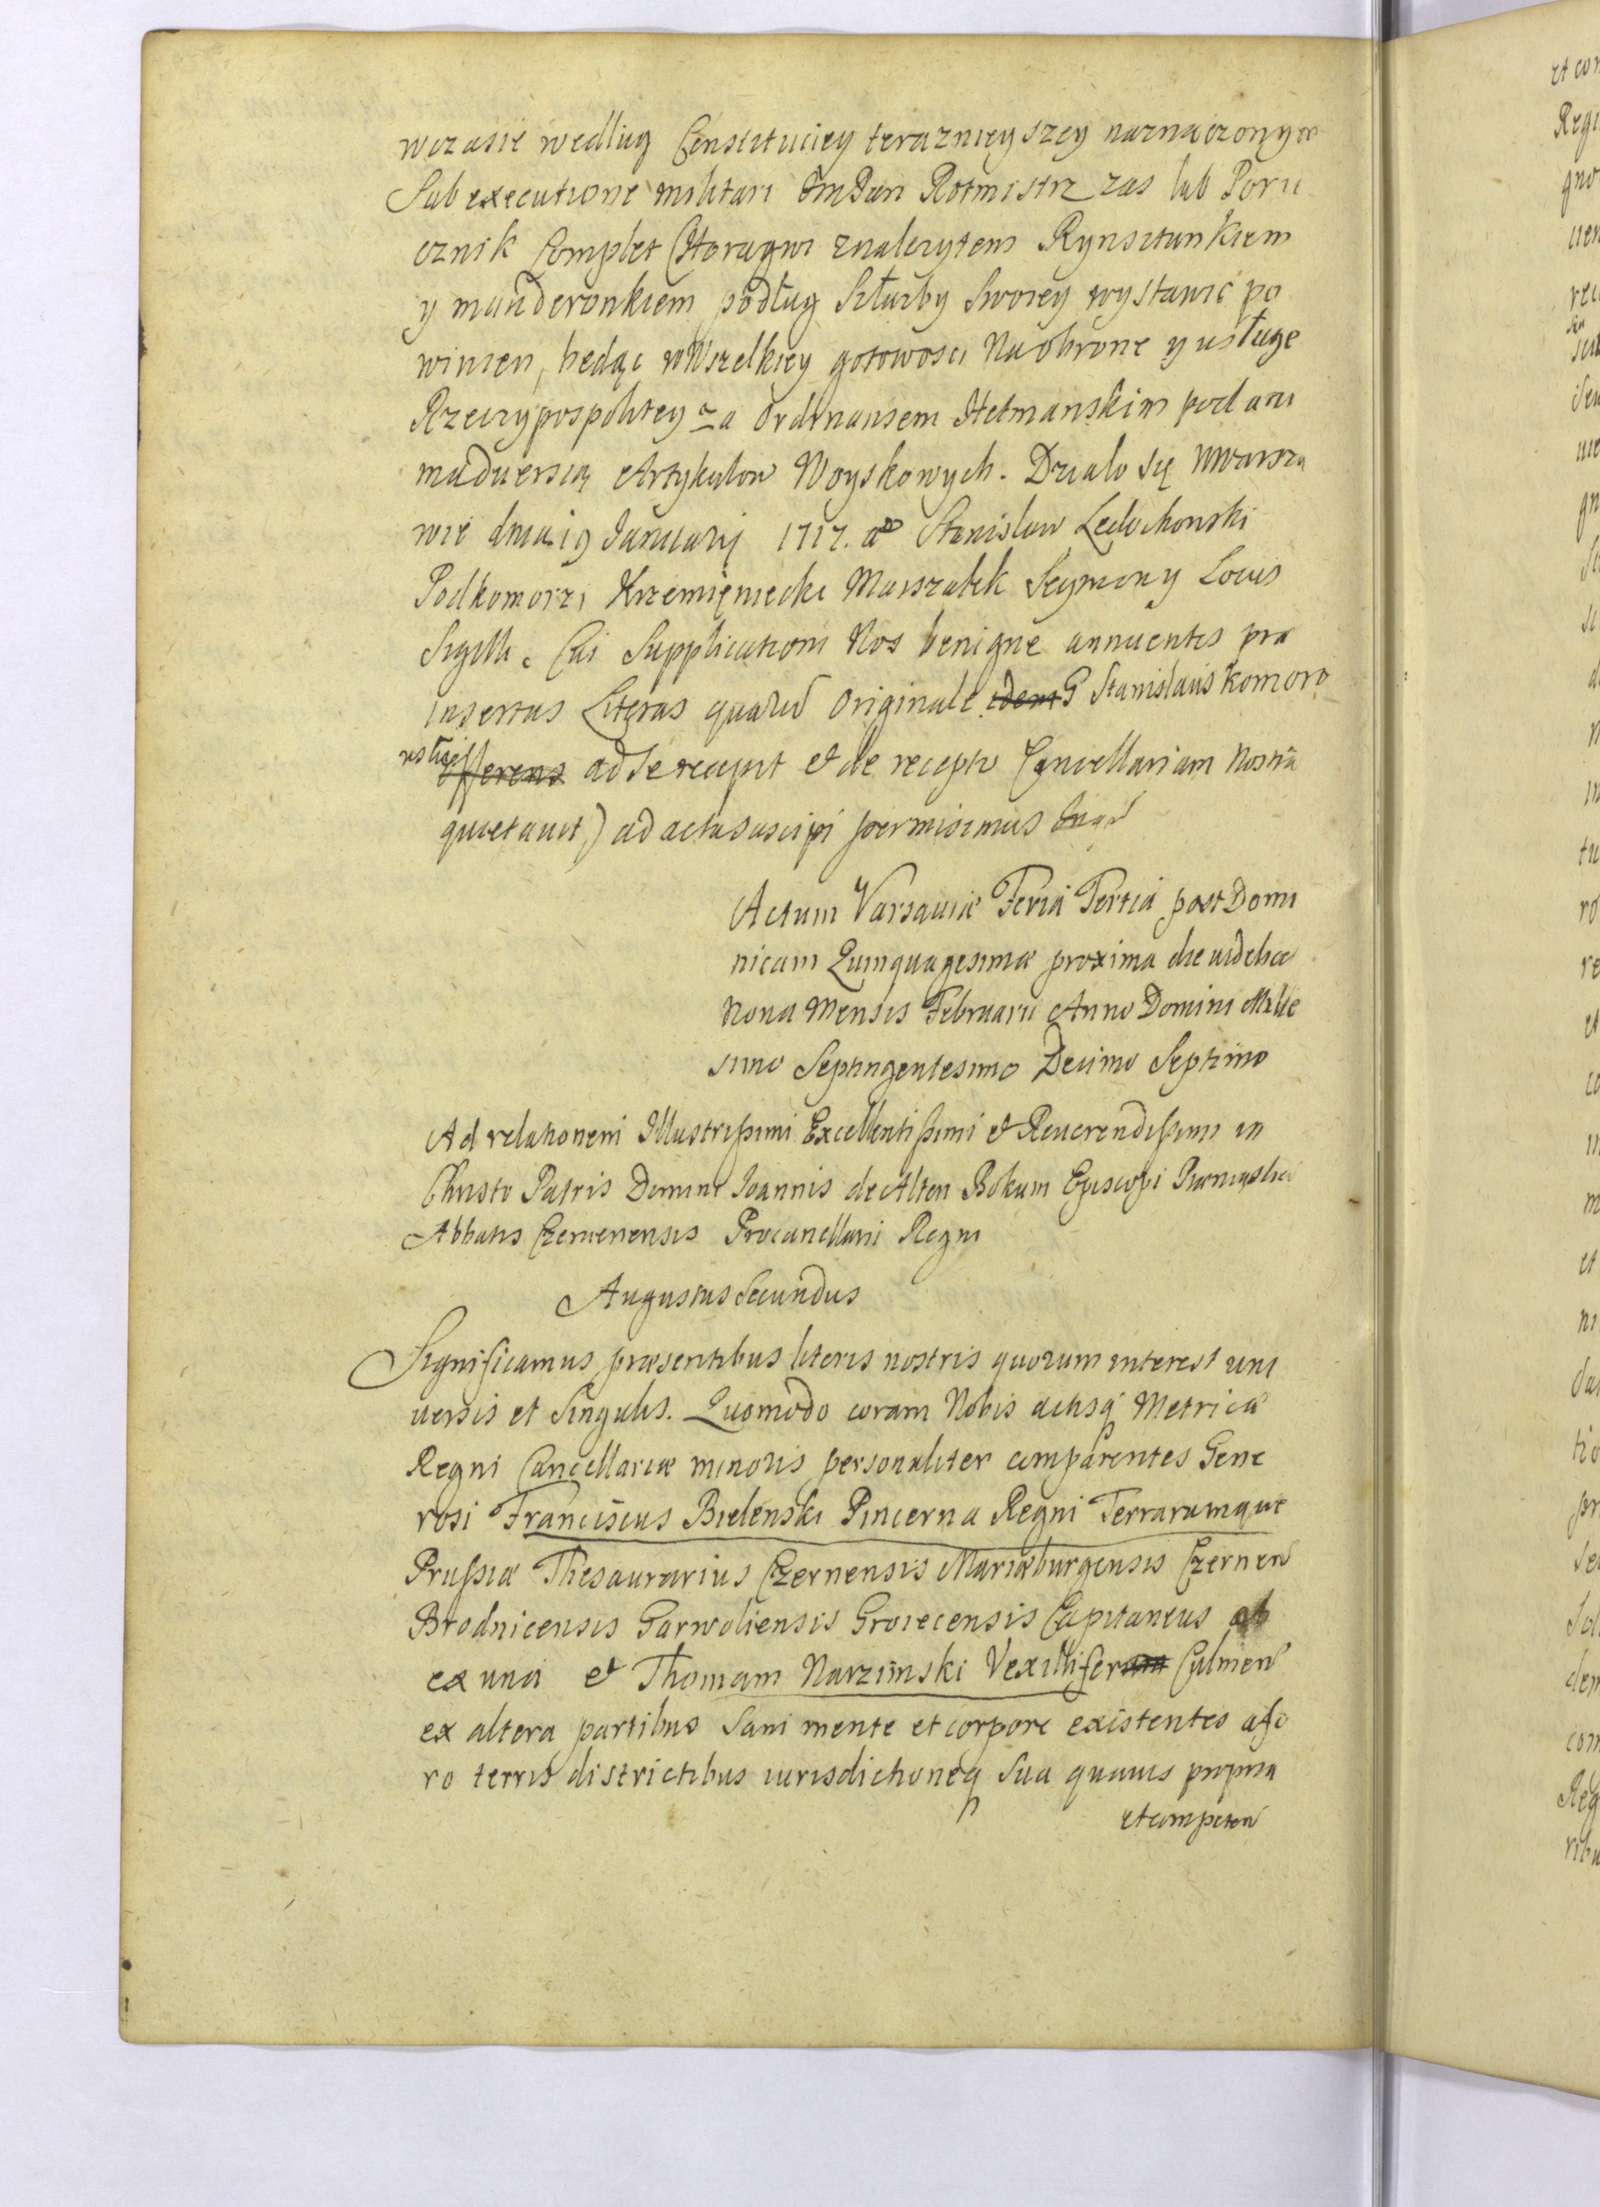 wczasie według Constituciey teraznieyszey naznaczonych
Sub executione militari ImPan Rotmistrz zas lub Poru
cznik Complet Choragwi znalezytem Rynsztunkiem
y munderonkiem podług Szłuzby Swoiey wystawic po
winien, będąc wWszelkiey gotowosci Na obrone y usługe
Rzeczypospolitey za Ordinansem Hetmanskim pod ani
maduersią Artykułow Woyskowych. Działo się wWarsza
wie dnia 19 Januarij 1717. a⁰ Stanisław Ledochowski
Podkomorzi Krzemięniecki Marszałek Seymowy Locus
Sigilli. Cui Supplicationi Nos benigne annuentes præ
insertas Literas quarum Originale idem G Stanislaus Komoro
wski offerens ad se recepit et de recepto Cancellariam Nostrã
quietauit,) ad acta suscipi permisimus
Actum Varsauiæ Feria Tertia post Domi
nicam Quinquagesimæ proxima die videlicet
Nona Mensis Februarii Anno Domini Mille
simo Septingentesimo Decimo Septimo
Ad relationem Illustrissimi Excellentissimi et Reuerendissimi in
Christo Patris Domini Joannis de Alten Bokum Episcopi Præmisliæ
Abbatis Czeruenensis Procancellarii Regni
Augustus Secundus
Significamus præsentibus literis nostris quorum interest uni
uersis et Singulis. Quomodo coram Nobis actisq Metricæ
Regni Cancellariæ minoris personaliter comparentes Gene
rosi Franciscus Bielenski Pincerna Regni Terrarumque
Prussiæ Thesaurarius Czernensis Mariæburgensis Czernen
Brodnicensis Garwoliensis Groiecensis Capitaneus ab
ex una et Thomam Narzimski Vexillifer Culmen
ex altera partibus Sani mente et corpore existentes a fo
ro terris districtibus iurisdictioneq Sua quauis propria
et competen